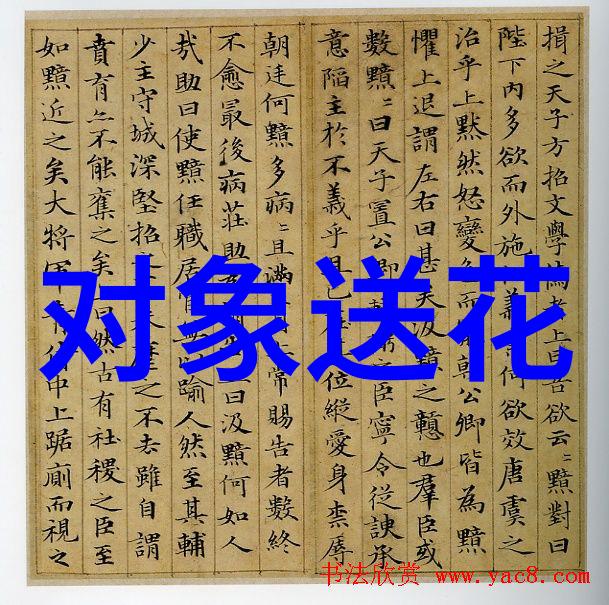 損之天子方招文學儒者上曰吾欲云〻黯對曰
陛下內多欲而外施 義 何欲效唐虞之
治乎上默然怒變色而 朝公卿皆為黯
懼上退謂左右曰甚矣汲黯之戇也羣臣或
數黯〻曰天子置公卿 之臣寧令從諛承
意陷主於不義乎且已在 位縱愛身柰辱
朝廷何黯多病〻且滿 常賜告者數終
不愈最後病莊助為 曰汲黯何如人
哉助曰使黯任職居官無以踰人然至其輔
少主守城深堅招 之不去雖自謂
賁育亦不能奪之矣上曰然古有社稷之臣至
如黯近之矣大將軍青侍中上踞廁而視之
对象送花
书法欣赏 www.yac8.com